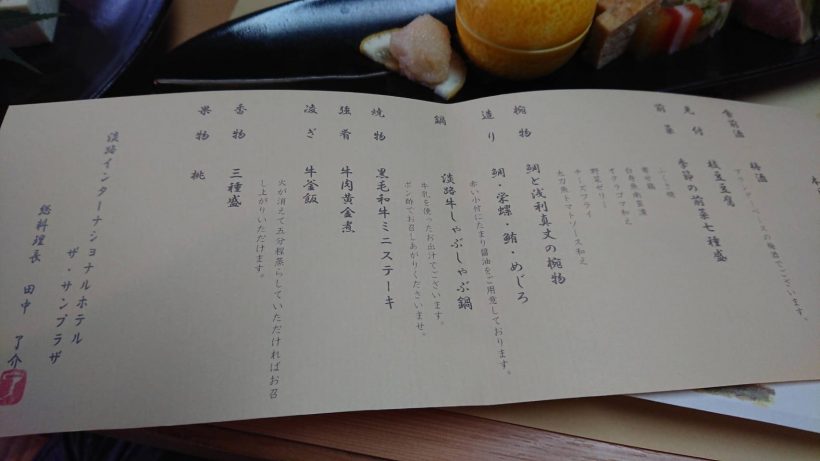 食前酒　梅酒
ブランデーベースの梅酒でございます。
先付　枝豆豆腐
前菜　季節の前菜七種盛
ふくさ焼
白身魚南蛮漬
オクラゴマ和え
野菜ゼリー
チーズフライ
太刀魚トマトソース和え
椀物　鯛と浅利真丈の椀物
造り　鯛・栄螺・鮪・めじろ
赤い小付にたまり醤油をご用意しております。
鍋　淡路牛しゃぶしゃぶ鍋
牛乳を使ったお出汁でございます。
ポン酢でお召しあがりくださいませ。
焼物　黒毛和牛ミニステーキ
強肴　牛肉黄金煮
凌ぎ　牛釜飯
火が消えて五分程蒸らしていただければお召
し上がりいただけます。
香物　三種盛
果物　桃
淡路インターナショナルホテル
ザ・サンプラザ
総料理長　田中　了介